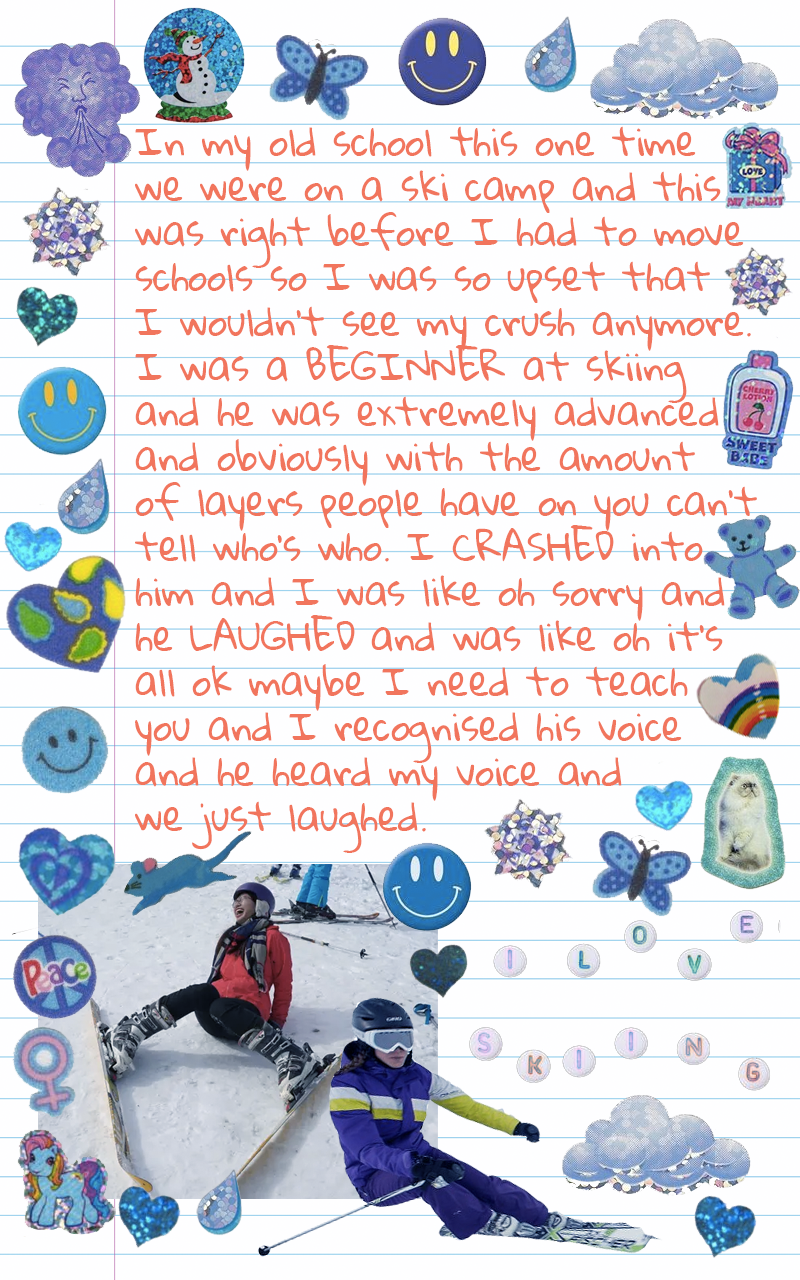 In my old school this one time
we were on a ski camp and this
was right before I had to move
schools so I was so upset that
I wouldn't see my crush anymore.
I was a BEGINNER at skiing
and he was extremely advanced
and obviously with the amount
of layers people have on you can't
tell who's who. I CRASHED into
him and I was like oh sorry and
he LAUGHED and was like oh it's
all ok maybe I need to teach
you and I recognised his voice
and he heard my voice and
we just laughed.
LOVE
MY HEART
CHERRY
LOTION
SWEET
BABE
Peace
I LOVE
SKIING
GIRO